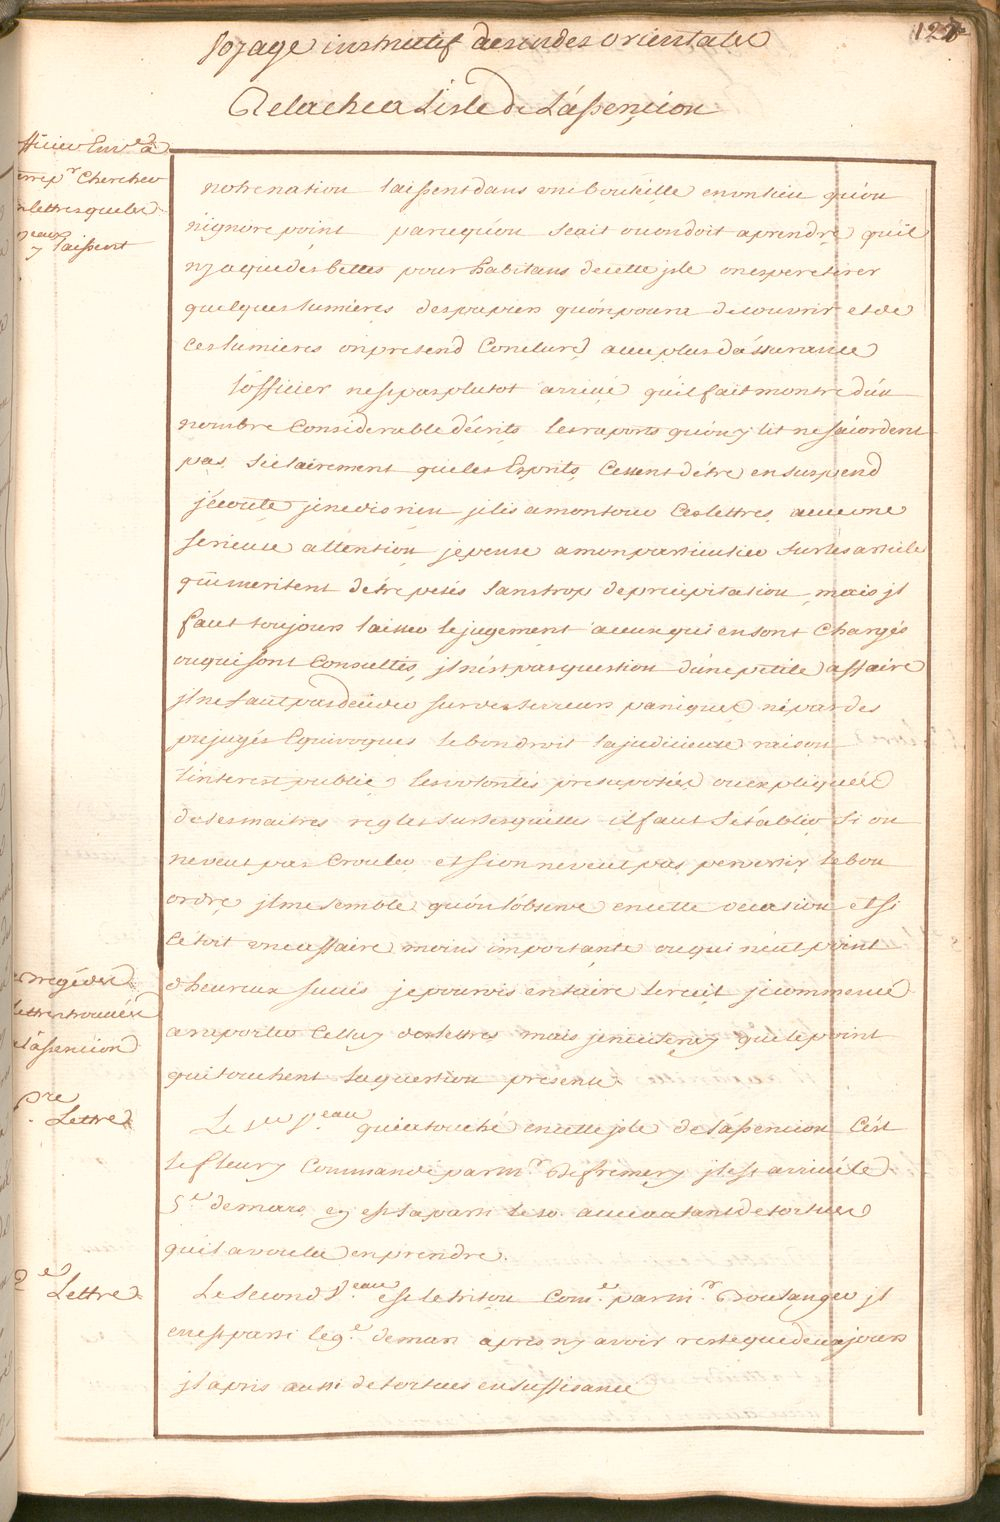 Voyage instructif des indes orientales
127
Relache a L'isle de L'assencion
officier Envoé a
terre pr Chercher
les lettres que les
vaux y laissent
notre nation laissent dans une bouteille en un lieu qu'on
n'ignore point parcequ'on scait ou on doit aprendre qu'il
n'y a que des bettes pour habitans de cette jsle on espere tirer
quelques lumieres des papiers qu'on poura decouvrir et de
ces lumieres on pretend Conclure avec plus d'assurance
l'officier n'est pas plutot arrivé qu'il fait montre d'un
nombre Considerable d'écrits les raports qu'on y lit ne s'acordent
pas si clairement que les Esprits cessent d'étre en suspend
j'écoute je ne dis rien je lis a mon tour ces lettres avec une
serieuse attention je pense a mon particulier sur les article
qui meritent d'étre pesés sans trop de precipitation mais jl
faut toujours laisser le jugement a ceux qui en sont Chargés
ou qui sont Consultés, jl n'est pas question d'une petite affaire
jl ne faut pas decider sur des terreurs paniques né par des
prejugés Equivoques le bon droit la judicieuse raison
l'interest public les volontés presuposées ou expliquées
de ses maitres regles sur lesquelles il faut s'établir si on
ne veut pas Crouler et si on ne veut pas pervertir le bon
ordre jl me semble qu'on l'observe en cette occasion et si
c'etoit une affaire moins importante ou qui n'eut point
d'heureux succés je pourois en taire le recit je commence
a raporter Celluy des lettres mais je n'ecriray que le point
qui touchent la question presente
abregé des
lettres trouvées
a l'assencion
pre
Lettre
Le 1er Veau qui a touché en cette jsle de l'assencion C'est
le fleury Commandé par mr Defremery jl est arrivé le
5e de mars et est a parti le 10 avec autant de tortues
qu'il a voulu en prendre.
2e
Lettre
Le second Veau est le triton Comé par mr Boulanger jl
en est parti le 9e de mars apres n'y avoir resté que deux jours
jl a pris aussi de tortues en suffisance